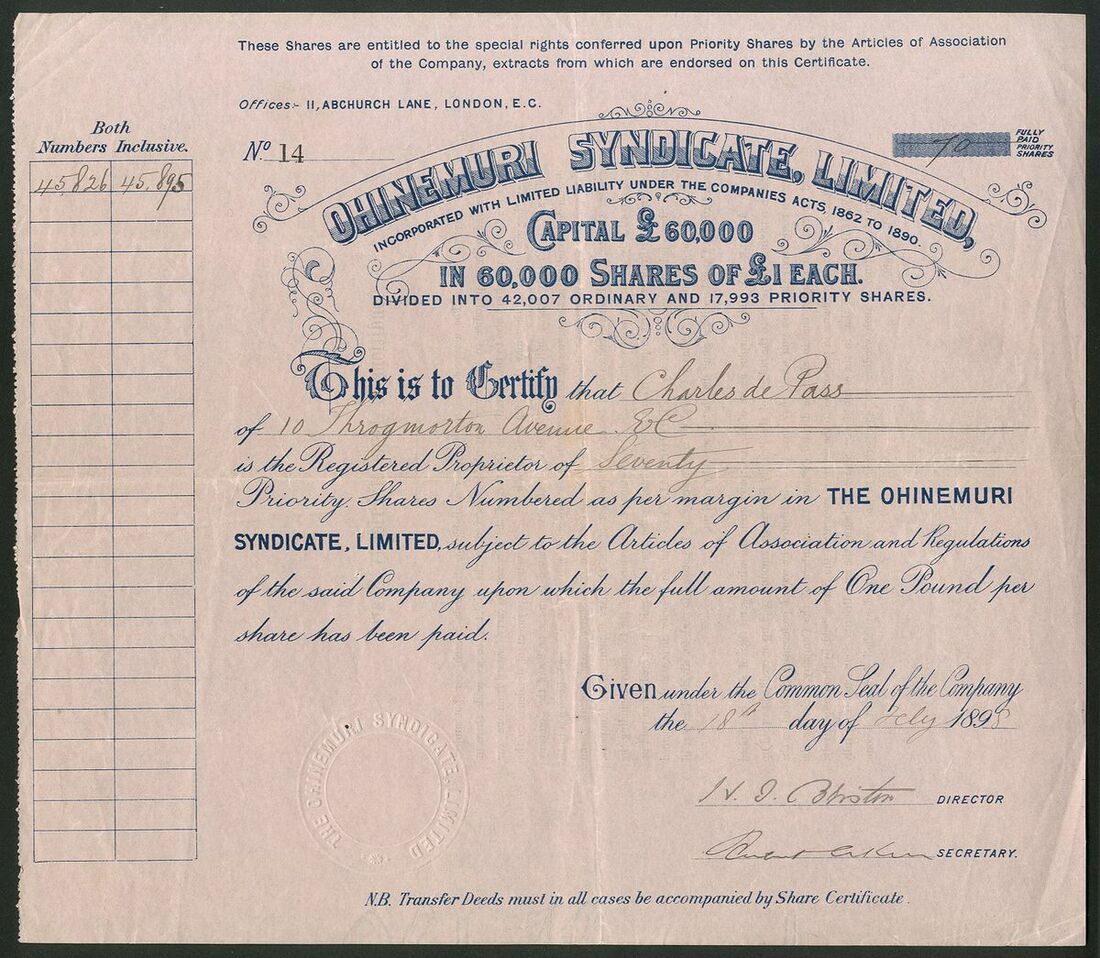 These Shares are entitled to the special rights conferred upon Priority Shares by the Articles of Association
of the Company, extracts from which are endorsed on this Certificate.
Offices:- 11, ABCHURCH LANE, LONDON, E.C.
Both
Numbers Inclusive.
45826 45.895
No 14
70
FULLY
PAID
PRIORITY
SHARES
OHINEMURI SYNDICATE, LIMITED,
INCORPORATED WITH LIMITED LIABILITY UNDER THE COMPANIES ACTS, 1862 TO 1890.
CAPITAL £60,000
IN 60,000 SHARES OF £1 EACH.
DIVIDED INTO 42,007 ORDINARY AND 17,993 PRIORITY SHARES.
This is to Certify that Charles de Pass
of 10 Throgmorton Avenue EC
is the Registered Proprietor of Seventy
Priority Shares Numbered as per margin in THE OHINEMURI
SYNDICATE, LIMITED, subject to the Articles of Association and Regulations
of the said Company upon which the full amount of One Pound per
share has been paid.
Given under the Common Seal of the Company
the 18th day of July 1898
DIRECTOR
SECRETARY.
THE OHINEMURI SYNDICATE LIMITED
N.B. Transfer Deeds must in all cases be accompanied by Share Certificate.